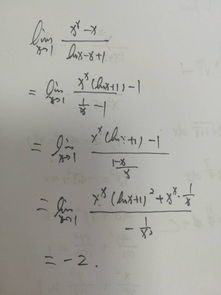 lim x→1 (x^x - x)/(lnx - x + 1)
= lim x→1 (x^x(lnx+1) - 1)/(1/x - 1)
= lim x→1 (x^x(lnx+1) - 1)/((1-x)/x)
= lim x→1 (x^x(lnx+1)^2 + x^x · 1/x)/(- 1/x^2)
= -2.